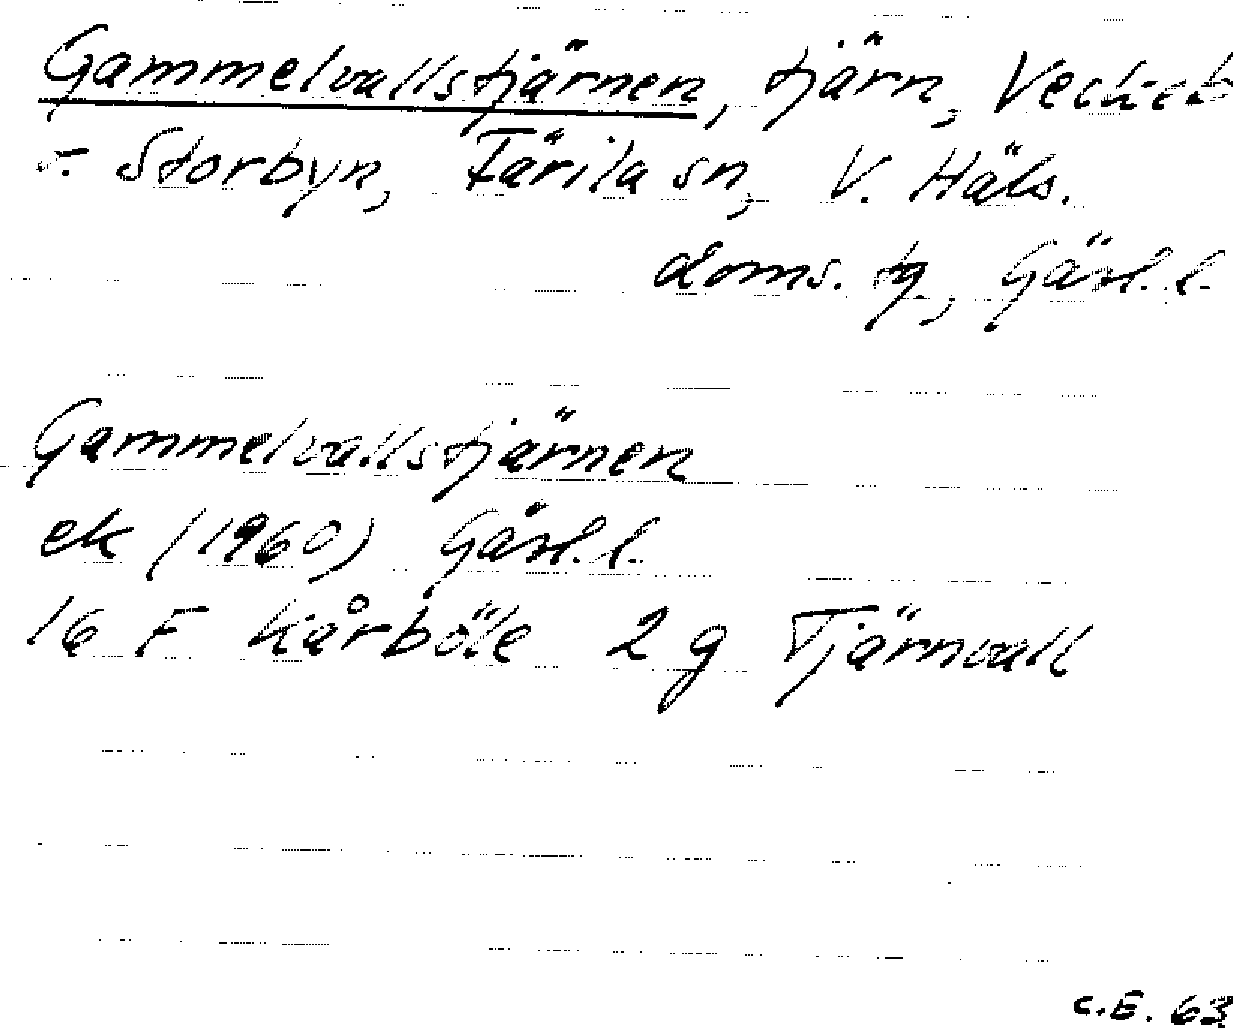 Gammelvallstjärnen, tjärn,
Storbyn, Färila sn, V. Häls.
doms. tg, Gävl. l.
Gammelvallstjärnen
ek (1960) Gävl. l.
16 F Kårböle 2 g Tjärnvall
C.E. 63